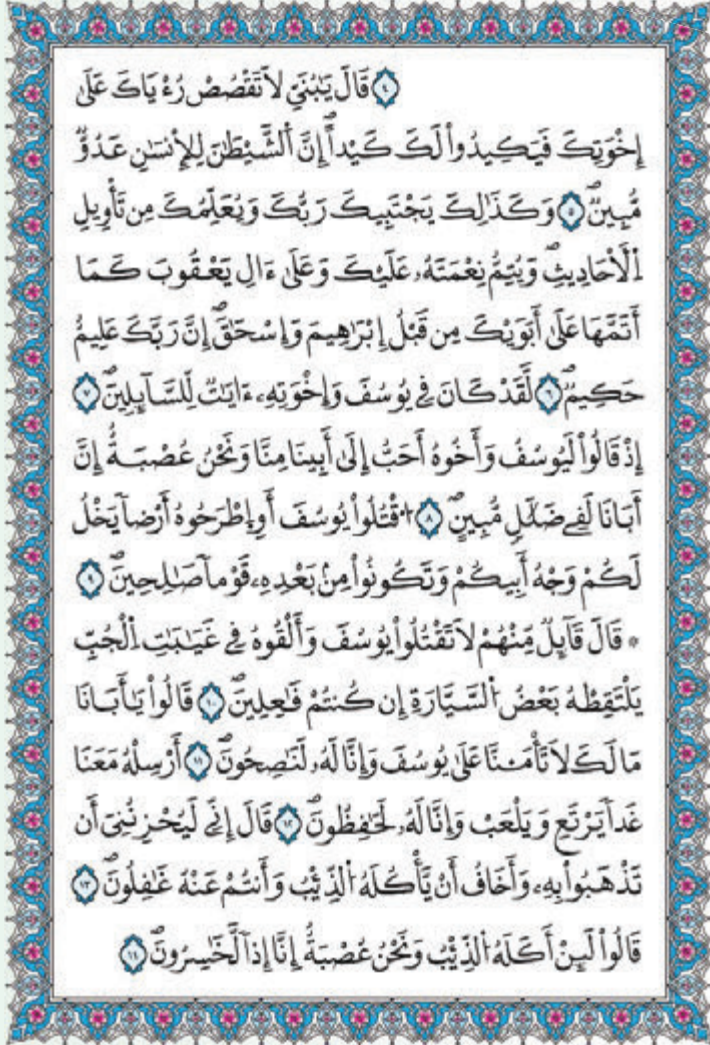 ﴿٤﴾ قَالَ يَٰبُنَيِّ لَا تَقْصُصْ رُءْيَاكَ عَلَىٰ
إِخْوَتِكَ فَيَكِيدُواْ لَكَ كَيْداًۖ إِنَّ اَ۬لشَّيْطَٰنَ لِلْإِنسَٰنِ عَدُوّٞ
مُّبِينٞۖ ﴿٥﴾ وَكَذَٰلِكَ يَجْتَبِيكَ رَبُّكَ وَيُعَلِّمُكَ مِن تَأْوِيلِ
اِ۬لْأَحَادِيثِۖ وَيُتِمُّ نِعْمَتَهُۥ عَلَيْكَ وَعَلَىٰ ءَالِ يَعْقُوبَ كَمَا
أَتَمَّهَا عَلَىٰ أَبَوَيْكَ مِن قَبْلُ إِبْرَٰهِيمَ وَإِسْحَٰقَۖ إِنَّ رَبَّكَ عَلِيمٌ
حَكِيمٞۖ ﴿٦﴾ لَّقَدْ كَانَ فِے يُوسُفَ وَإِخْوَتِهِۦ ءَايَٰتٞ لِّلسَّآئِلِينَۖ ﴿٧﴾
إِذْ قَالُواْ لَيُوسُفُ وَأَخُوهُ أَحَبُّ إِلَىٰ أَبِينَا مِنَّا وَنَحْنُ عُصْبَةٌۖ إِنَّ
أَبَانَا لَفِے ضَلَٰلٖ مُّبِينٍۖ ﴿٨﴾ اُ۟قْتُلُواْ يُوسُفَ أَوِ اِ۪طْرَحُوهُ أَرْضاٗ يَخْلُ
لَكُمْ وَجْهُ أَبِيكُمْ وَتَكُونُواْ مِنۢ بَعْدِهِۦ قَوْماٗ صَٰلِحِينَۖ ﴿٩﴾
۞ قَالَ قَآئِلٞ مِّنْهُمْ لَا تَقْتُلُواْ يُوسُفَ وَأَلْقُوهُ فِے غَيَٰبَٰتِ اِ۬لْجُبِّ
يَلْتَقِطْهُ بَعْضُ اُ۬لسَّيَّارَةِ إِن كُنتُمْ فَٰعِلِينَۖ ﴿١٠﴾ قَالُواْ يَٰأَبَانَا
مَا لَكَ لَا تَأْمَ۬نَّا عَلَىٰ يُوسُفَ وَإِنَّا لَهُۥ لَنَٰصِحُونَۖ ﴿١١﴾ أَرْسِلْهُ مَعَنَا
غَداٗ يَرْتَعِ وَيَلْعَبْ وَإِنَّا لَهُۥ لَحَٰفِظُونَۖ ﴿١٢﴾ قَالَ إِنِّے لَيُحْزِنُنِيَ أَن
تَذْهَبُواْ بِهِۦ وَأَخَافُ أَنْ يَّأْكُلَهُ اُ۬لذِّئْبُ وَأَنتُمْ عَنْهُ غَٰفِلُونَۖ ﴿١٣﴾
قَالُواْ لَئِنْ أَكَلَهُ اُ۬لذِّئْبُ وَنَحْنُ عُصْبَةٌ إِنَّا إِذاٗ لَّخَٰسِرُونَۖ ﴿١٤﴾